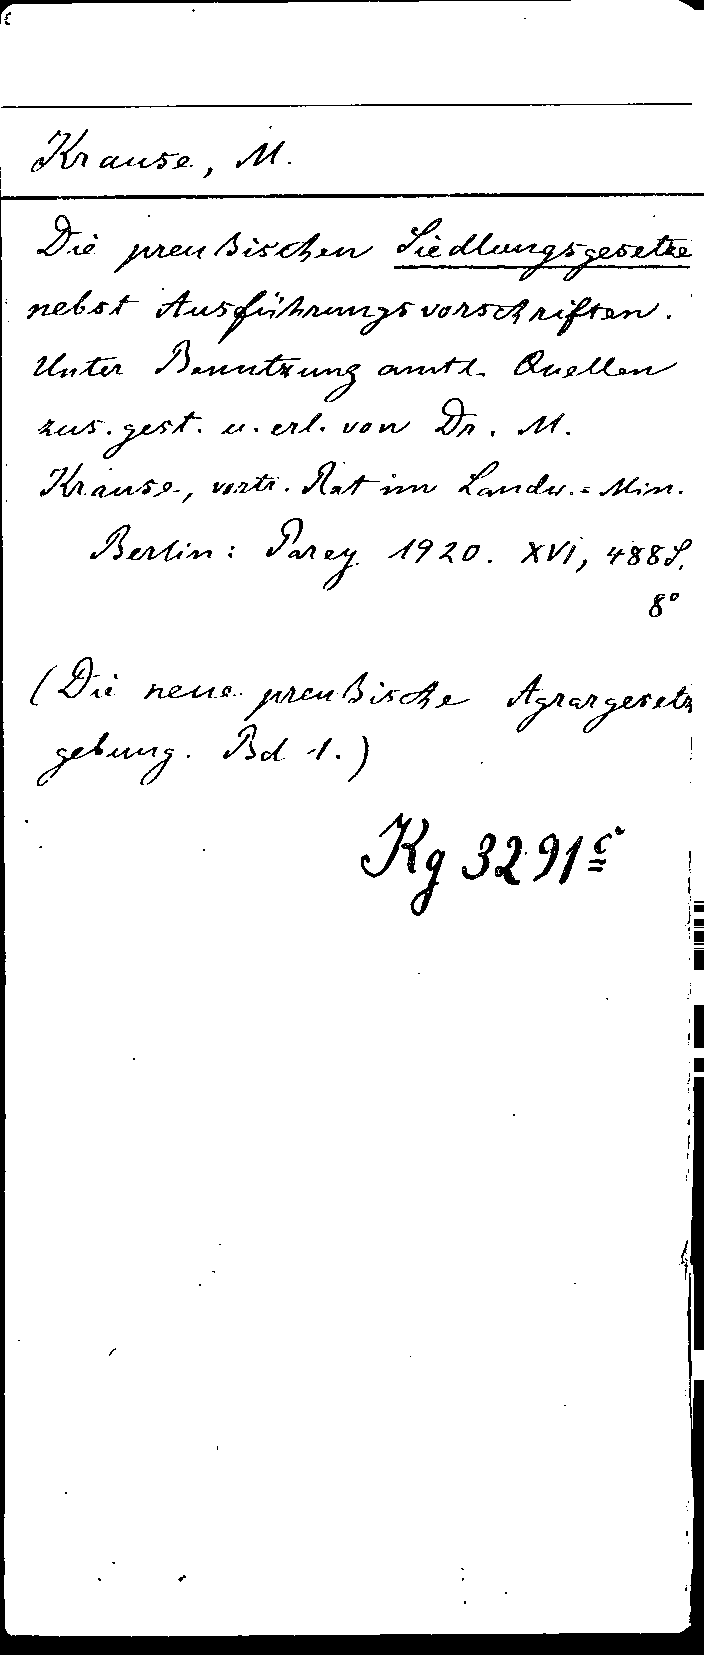 Krause, M.
Die preußischen Siedlungsgesetze
nebst Ausführungsvorschriften.
Unter Benutzung amtl. Quellen
zus. gest. u. erl. von Dr. M.
Krause, vortr. Rat im Landw.=Min.
Berlin: Parey 1920. XVI, 488 S.
8°
(Die neue preußische Agrargesetz
gebung. Bd 1.)
Kg 3291 c